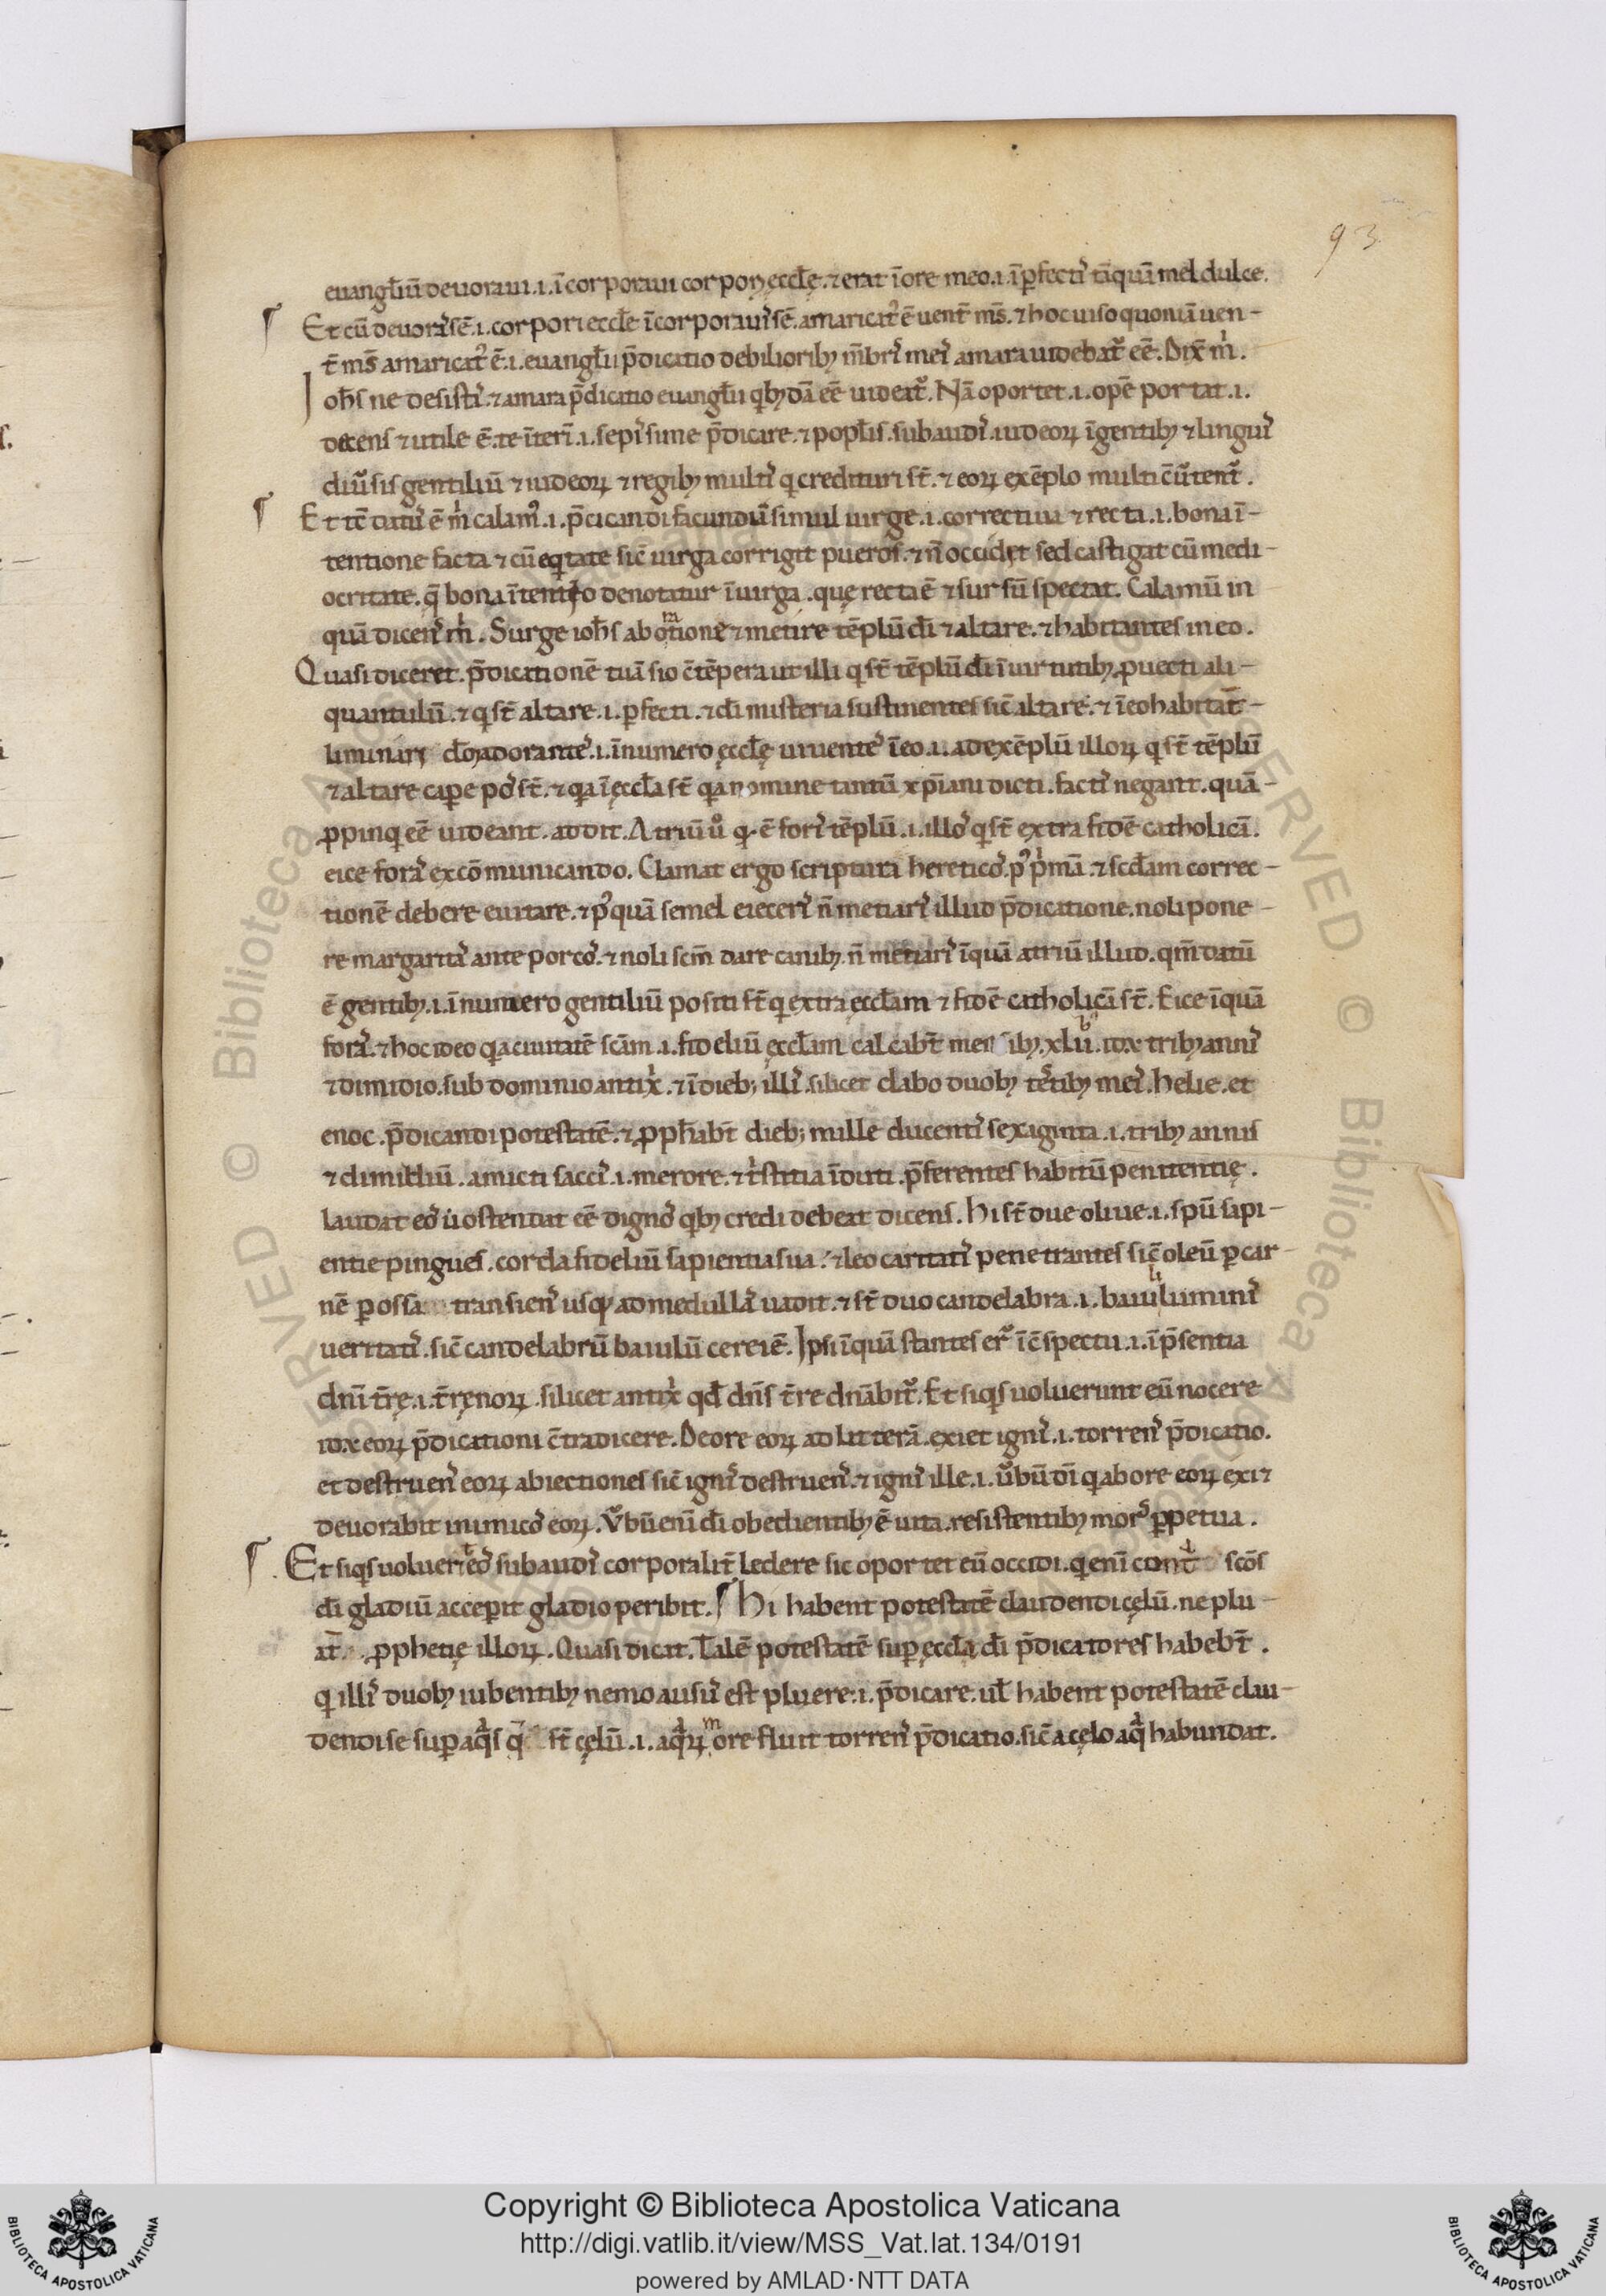 93
euangłiū deuoraui .i. ī corporaui corpori ęccłę. ⁊ erat ī ore meo .i. ī ꝑfectı᷒ tāquā mel dulce.
¶ Et cū deuora᷒sē .i. corpori eccłe īcorporaui᷒sē. amaricat᷒ ē uent̄ ms̄. ⁊ hoc uiso quoniā uen-
t̄ ms̄ amaricat᷒ ē .i. euangłii p̄dicatio debiliorib; m̄bri᷒ mei᷒ amara uidebat᷑ eē. Dix̄ m̍.
Ioh̄s ne desisti᷒. ⁊ amara p̄dicatio euangłii qb;dā eē uideat᷑. Nā oportet .i. opē portat .i.
decens ⁊ utile ē. te īterı̄ .i. sepi᷒sime p̄dicare. ⁊ popłis. subaudi᷒. iudeoꝝ ī gentib; ⁊ lingui᷒
diu᷑sis gentiliū ⁊ iudeoꝝ ⁊ regib; multi᷒ q credituri st̄. ⁊ eoꝝ exēplo multi cū᷑tent᷑.
¶ Et tē datu᷒ ē m̍ calam᷒ .i. p̄dicandi facundiā simul uirge .i. correctiua ⁊ recta .i. bona ī-
tentione facta ⁊ cū eq̍tate sic̄ uirga corrigit pueros. ⁊ n̄ occidet sed castigat cū medi-
ocritate. q̄ bona ītentio denotatur ī uirga. quę recta ē ⁊ sursū spectat. Calamū in
quā dicen᷒ m̍. Surge ioh̄s ab omtione ⁊ metire tēplū dı̄ ⁊ altare. ⁊ habitantes in eo.
Quasi diceret. p̄dicationē tuā sio c̄tēpera ut illi q st̄ tēplū dı̄ ī uirtutib; ꝓuecti ali-
quantulū. ⁊ q st̄ altare .i. ꝑfecti. ⁊ dı̄ misteria sustinentes sic̄ altare. ⁊ ī eo habitāt-
liminari dm̄ adorante᷒ .i. ī numero ęccłę uiuente᷒ ī eo .i. ad exēplū illoꝝ q st̄ tēplū
⁊ altare caꝑe po᷒st̄. ⁊ qa ī ęccła st̄ qdā nomine tantū xp̄iani dicti. facti᷒ negant. quā-
ꝓpinq eē uideant. addit. Atriū u᷑o q. ē fori᷒ tēplū .i. illo᷒ q st̄ extra fidē catholicā.
eice fora᷒ excōmunicando. Clamat ergo scriptura heretico᷒. p᷒ p̍mā. ⁊ scđam correc-
tionē debere euitare. ⁊ p᷒quā semel eieceri᷒ n̄ metiari᷒ illud p̄dicatione. noli pone-
re margarita᷒ ante porco᷒. ⁊ noli scm̄ dare canib;. n̄ metiari᷒ īquā atriū illud. qm̄ datū
ē gentib; .i. ī numero gentiliū positi st̄ q extra ęccłam ⁊ fidē catholicā st̄. Eice īquā
fora᷒. ⁊ hoc ideo qa ciuitatē scām .i. fideliū ęccłam calcabt̄ mensib; .xlii. id.x trib; anni᷒
⁊ dimidio. sub dominio antix̍. ⁊ ī dieb; illi᷒. silicet dabo duob; testib; mei᷒. helie. et
enoc. p̄dicandi potestatē. ⁊ ꝓph̄abt̄ dieb; mille ducenti᷒ sexiginta .i. trib; annis
⁊ dimidiū. amicti sacci᷒ .i. merore. ⁊ t̍stitia īduti. p̄ferentes habitū penitentię.
laudat eo᷒ ii ostendat eē digno᷒ qb; credi debeat dicens. Hi st̄ due oliue .i. spū sapi-
entie pingues. corda fideliū sapientia sua. ⁊ leo caritati᷒ penetrantes sic̄ oleū ꝑ car-
nē ꝑ ossa transien᷒ usq; ad medulla᷒ uadit. ⁊ st̄ duo candelabra .i. baiuli lumini᷒
ueritati᷒. sic̄ candelabrū baiulū cerei ē. Ipsi īquā stantes er᷑ ī c̄spectu .i. ī p̄sentia
dnı̄ t̄rę .i. t̄ręnoꝝ. silicet antix̍ qd̄ dn̄s t̄re dnābit᷑. Et siq̍s uoluerunt eū nocere
id.x eoꝝ p̄dicationi c̄tradicere. De ore eoꝝ ad litterā. exiet igni᷒ .i. torren᷒ p̄dicatio.
et destruen᷒ eoꝝ abiectiones sic̄ igni᷒ destruen᷒. ⁊ igni᷒ ille .i. u᷑bū dı̄ q ab ore eoꝝ exit
deuorabit inimico᷒ eoꝝ. V᷑bū enı̄ dı̄ obedientib; ē uita. resistentib; mor᷒ ꝑpetua.
¶ Et siq̍s uoluerit eo᷒ subaudi᷒ corporalit̄ ledere sic oportet eū occidi. q enı̄ cont̍ scōs
dı̄ gladiū acceꝑit gladio peribit. ¶ Hi habent potestatē claudendi cęlū. ne plu-
at̄ ꝓphetię illoꝝ. Quasi dicat. Talē potestatē suꝑ ęccła dı̄ p̄dicatores habebt̄.
q illi᷒ duob; iubentib; nemo ausu᷒ est pluere .i. p̄dicare. uł habent potestatē clau-
dendi se suꝑ aq̍s q̄ st̄ cęlū .i. aq̍ꝝ m ore fluit torren᷒ p̄dicatio. sic̄ a cęlo aq̍ habundat.
Copyright © Biblioteca Apostolica Vaticana
http://digi.vatlib.it/view/MSS_Vat.lat.134/0191
powered by AMLAD·NTT DATA